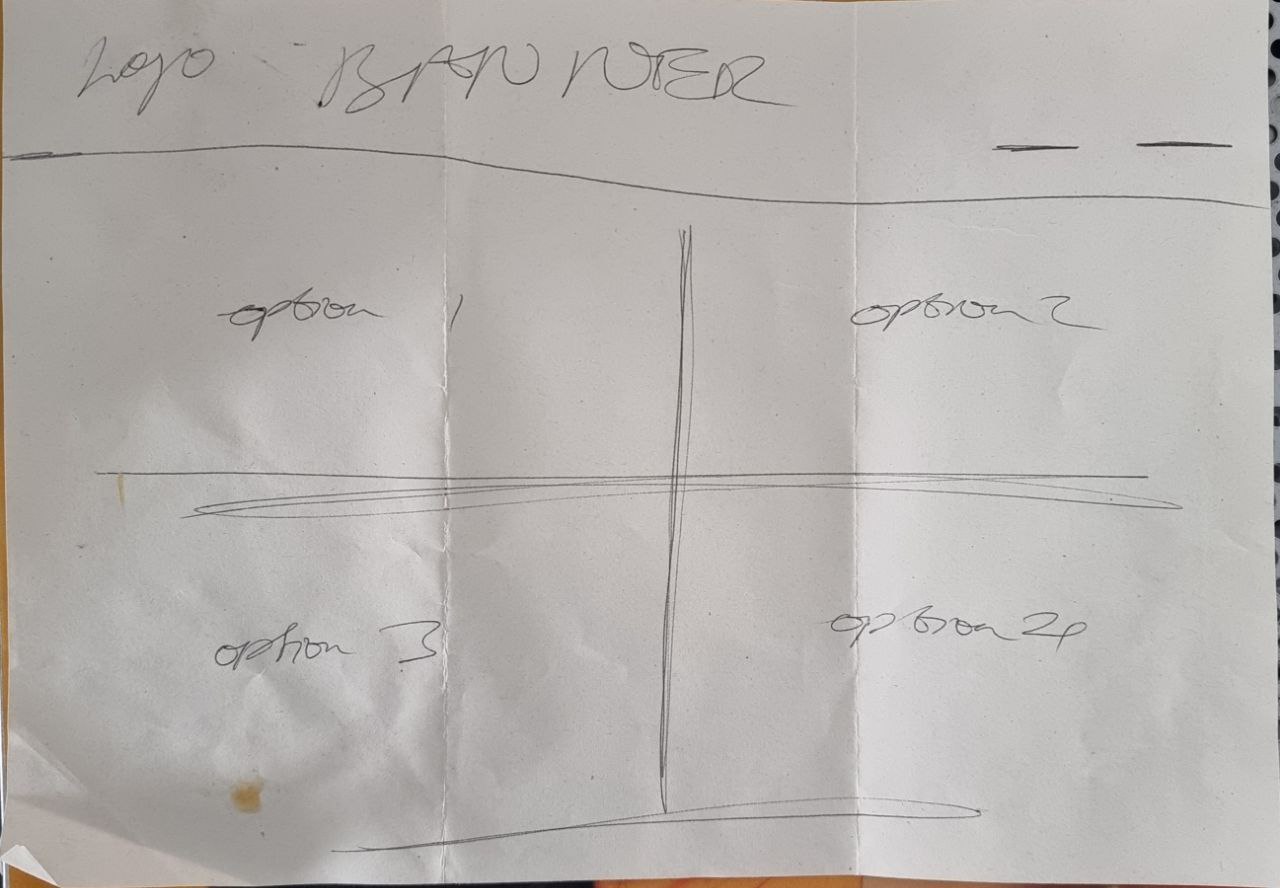 Logo BANNER
option 1 option 2
option 3 option 4